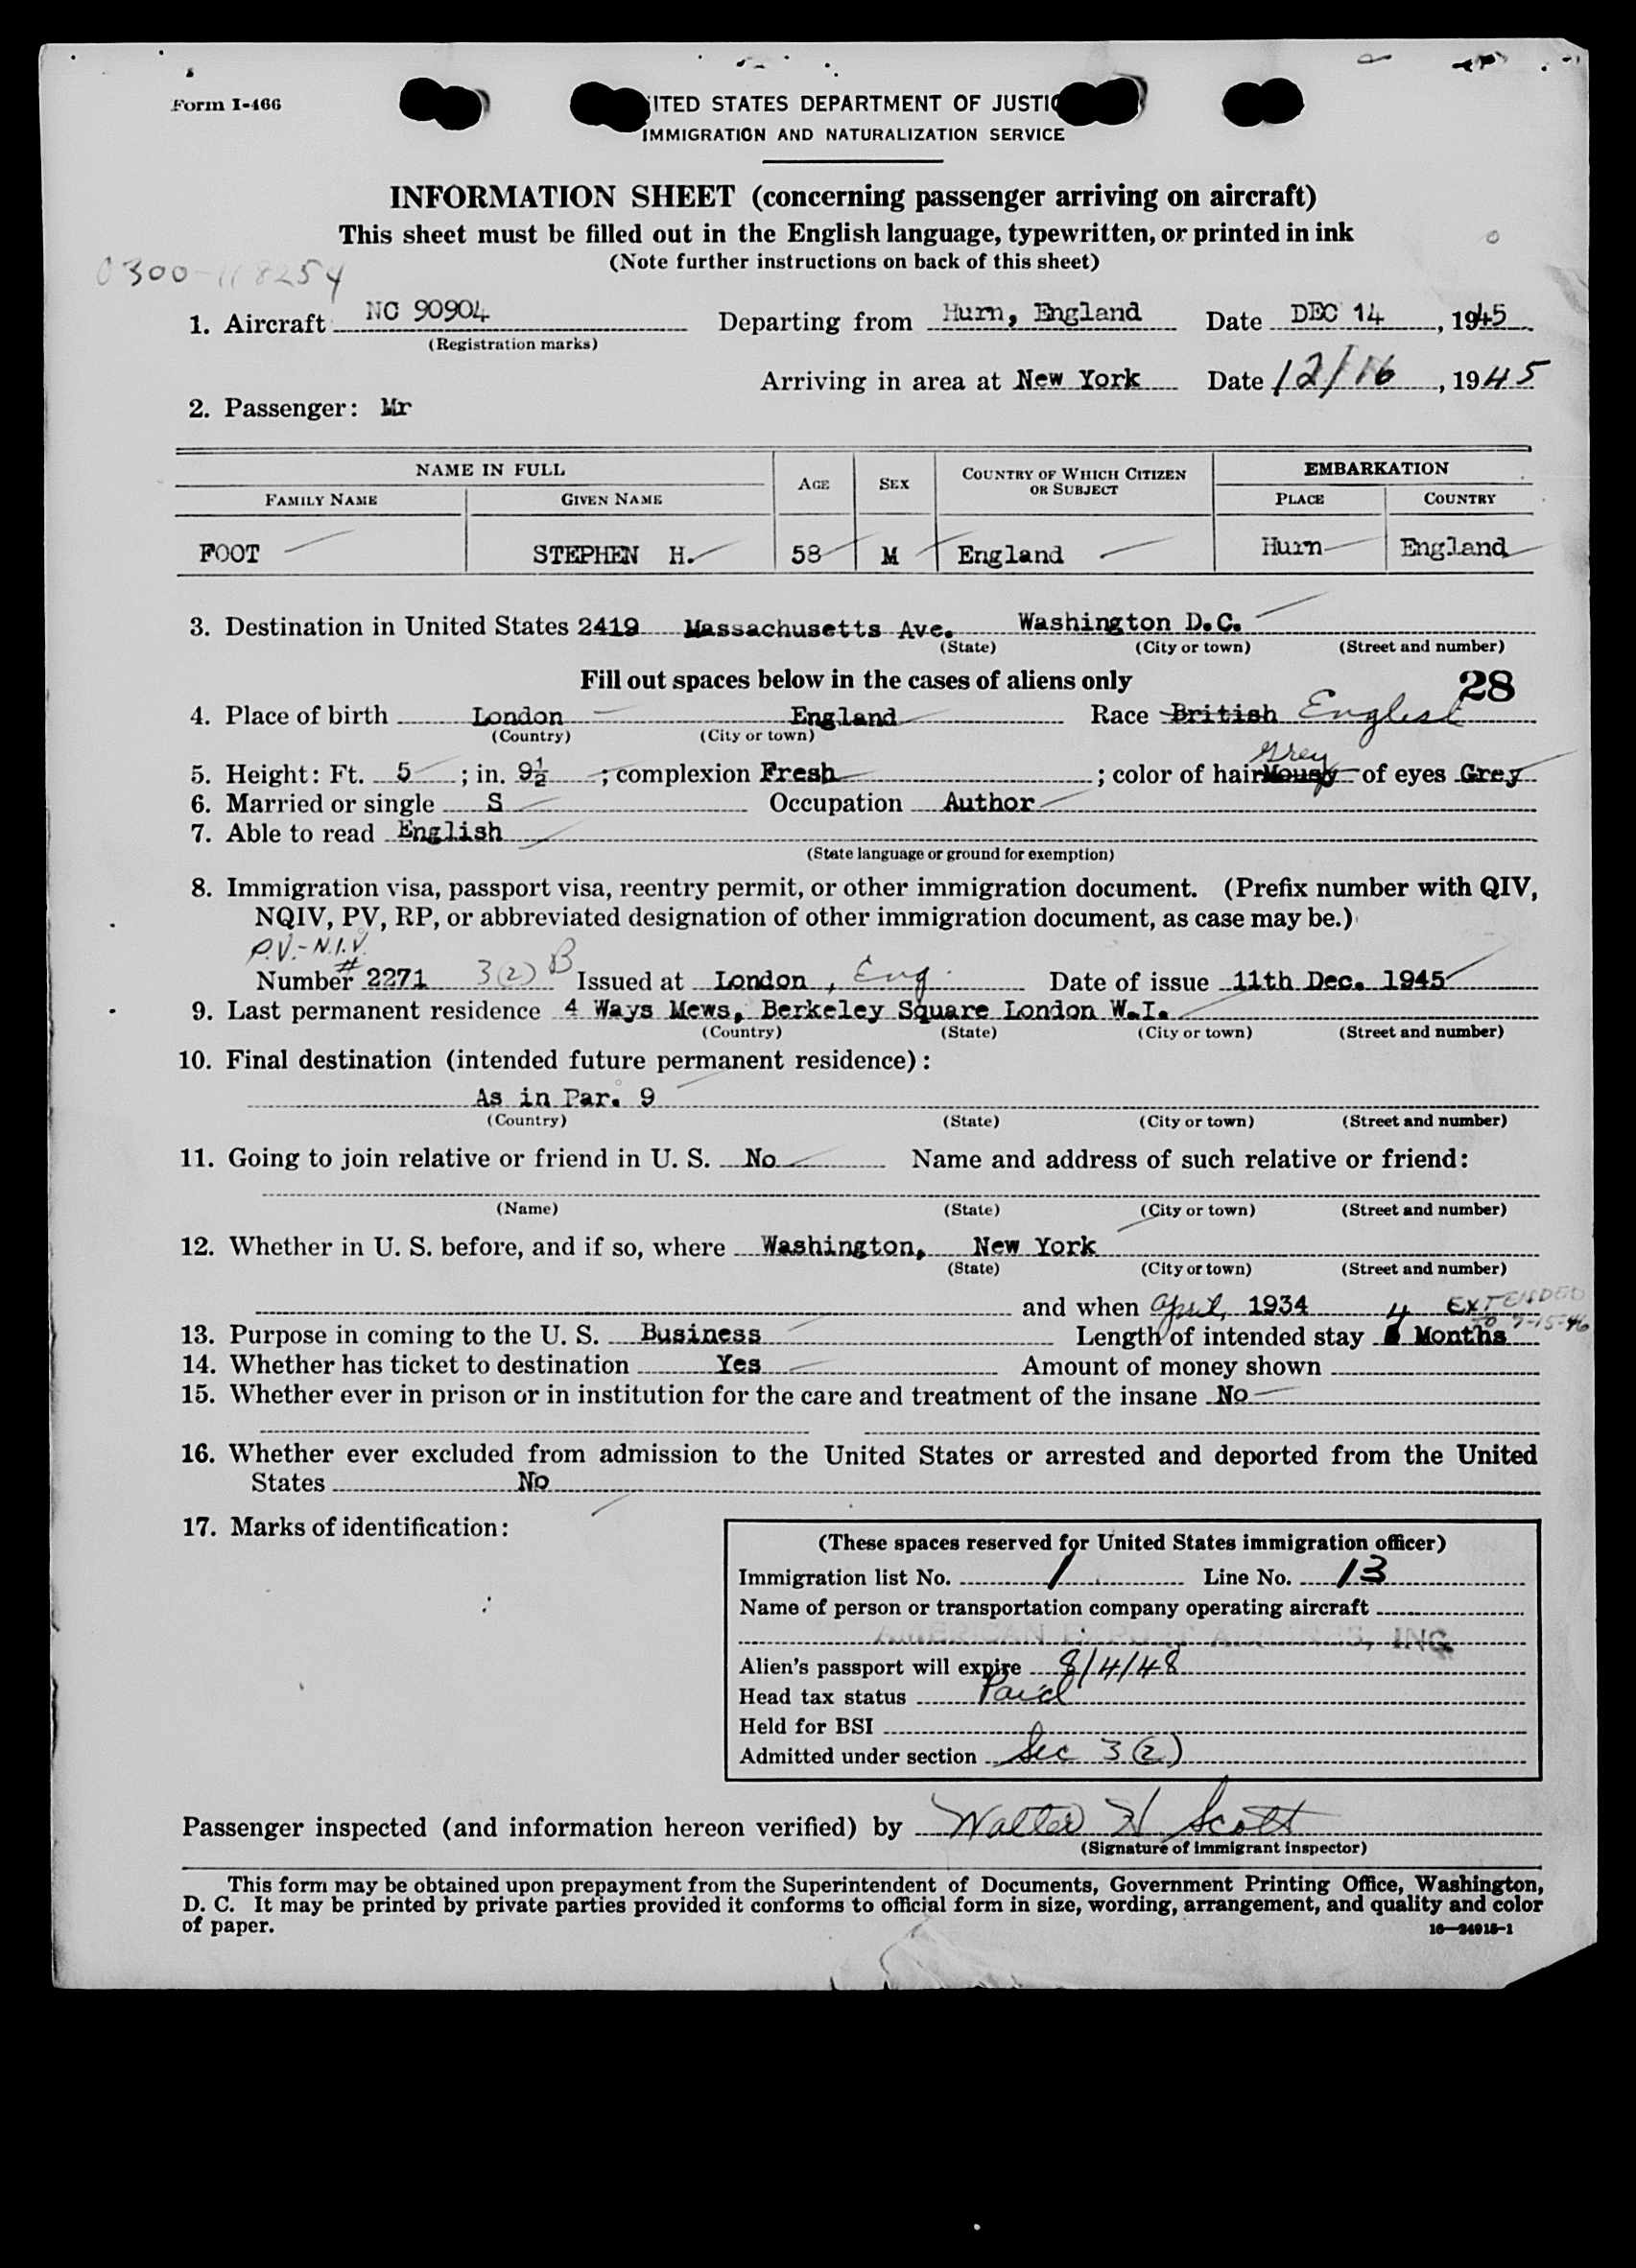 Form I-466
ITED STATES DEPARTMENT OF JUSTIC
IMMIGRATION AND NATURALIZATION SERVICE
INFORMATION SHEET (concerning passenger arriving on aircraft)
This sheet must be filled out in the English language, typewritten, or printed in ink
(Note further instructions on back of this sheet)
0300-118254
1. Aircraft NC 90904 Departing from Hurn, England Date DEC 14, 1945
(Registration marks)
Arriving in area at New York Date 12/16, 1945
2. Passenger: Mr
NAME IN FULL AGE SEX COUNTRY OF WHICH CITIZEN OR SUBJECT EMBARKATION
FAMILY NAME GIVEN NAME PLACE COUNTRY
FOOT STEPHEN H. 58 M England Hurn England
3. Destination in United States 2419 Massachusetts Ave. Washington D.C.
(State) (City or town) (Street and number)
Fill out spaces below in the cases of aliens only
28
4. Place of birth London England Race British English
(Country) (City or town)
Grey
5. Height: Ft. 5; in. 9½; complexion Fresh; color of hair Mousy of eyes Grey
6. Married or single S Occupation Author
7. Able to read English
(State language or ground for exemption)
8. Immigration visa, passport visa, reentry permit, or other immigration document. (Prefix number with QIV,
NQIV, PV, RP, or abbreviated designation of other immigration document, as case may be.)
P.V.-N.I.V.
Number # 2271 3(2) B Issued at London, Eng. Date of issue 11th Dec. 1945
9. Last permanent residence 4 Ways Mews, Berkeley Square London W.I.
(Country) (State) (City or town) (Street and number)
10. Final destination (intended future permanent residence):
As in Par. 9
(Country) (State) (City or town) (Street and number)
11. Going to join relative or friend in U. S. No Name and address of such relative or friend:
(Name) (State) (City or town) (Street and number)
12. Whether in U. S. before, and if so, where Washington, New York
(State) (City or town) (Street and number)
and when April, 1934 4 EXTENDED
TO 7-15-46
13. Purpose in coming to the U. S. Business Length of intended stay Months
14. Whether has ticket to destination Yes Amount of money shown
15. Whether ever in prison or in institution for the care and treatment of the insane No
16. Whether ever excluded from admission to the United States or arrested and deported from the United
States No
17. Marks of identification:
(These spaces reserved for United States immigration officer)
Immigration list No. 1 Line No. 13
Name of person or transportation company operating aircraft
AMERICAN EXPORT AIRLINES, INC.
Alien's passport will expire 8/4/48
Head tax status Paid
Held for BSI
Admitted under section Sec 3(2)
Passenger inspected (and information hereon verified) by Walter H Scott
(Signature of immigrant inspector)
This form may be obtained upon prepayment from the Superintendent of Documents, Government Printing Office, Washington,
D. C. It may be printed by private parties provided it conforms to official form in size, wording, arrangement, and quality and color
of paper.
16—24915-1